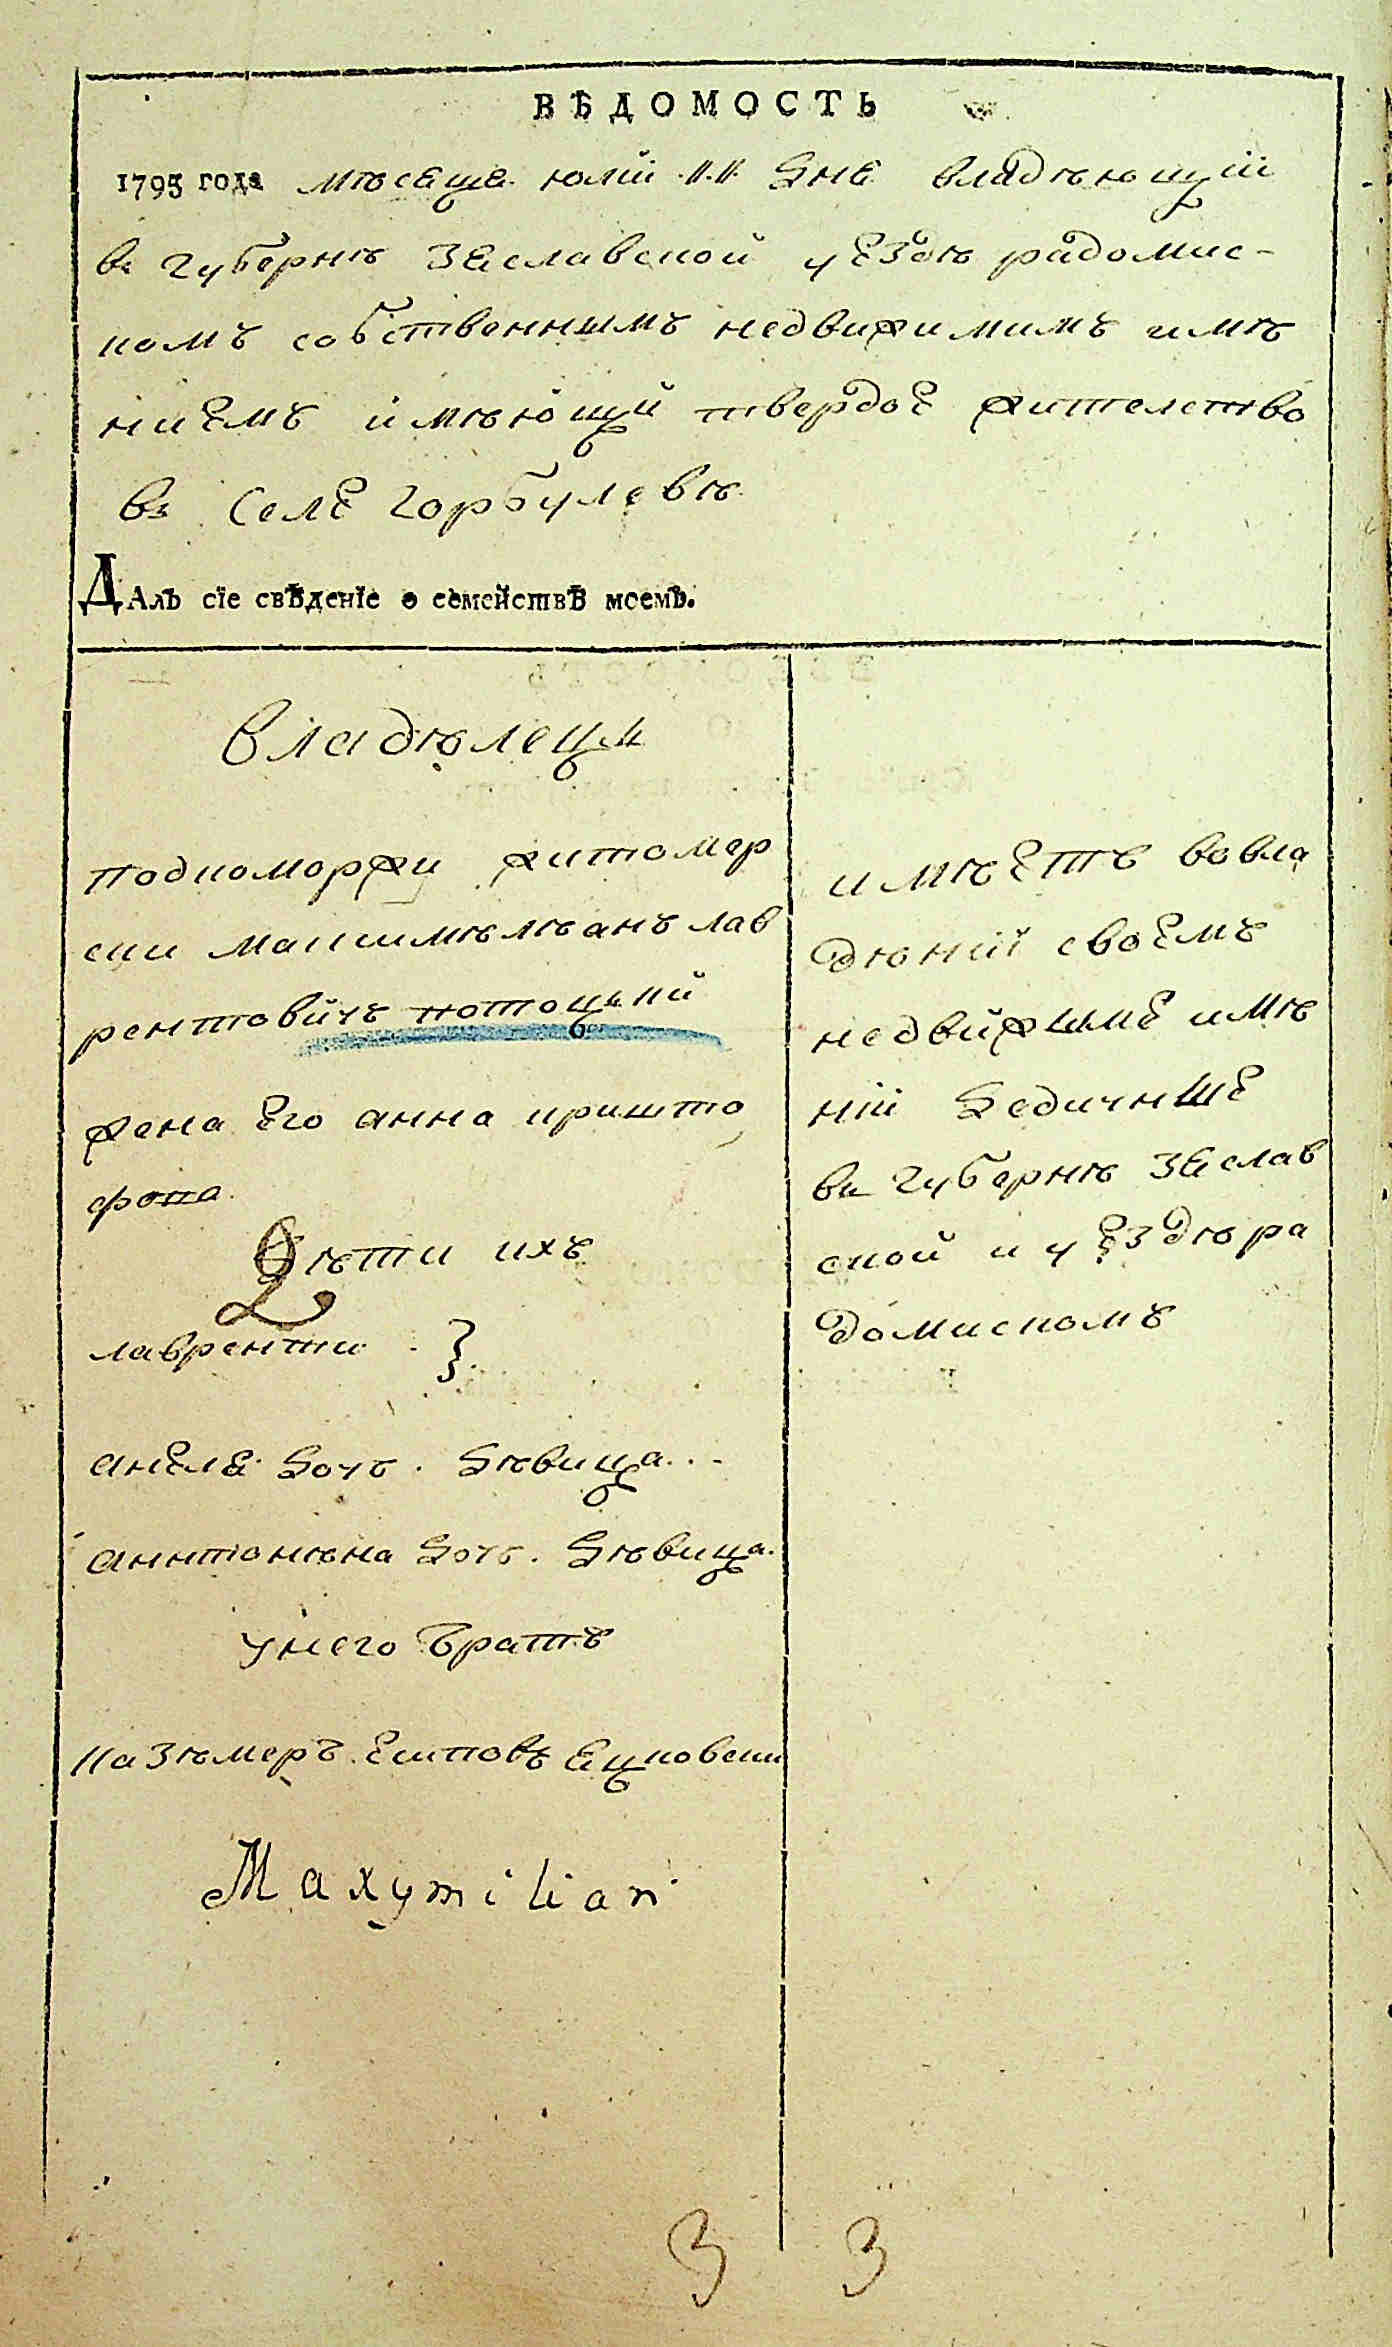 ВѢДОМОСТЬ
1795 года мѣсеца юлій 11 дне владѣющій
въ губернѣ Заславской уездѣ радомис-
комъ собственнымъ недвижимимъ имѣ
ниемъ имѣющій твердое жителство
въ селе горбулевѣ
ДАлъ сїе свѣденїе о семействѣ моемъ.
владѣлецъ
подкоморжи житомер
ски максимѣлѣанъ лав
рентовичъ потоцкий
жена его анна кришто
фона
Дѣти ихъ
лаврентии
анеля дочъ. дѣвица
аннтонѣна дочъ. дѣвица.
унего братъ
казѣмеръ еипов яцковски
Maxymilian
имѣетъ вовла
дѣній своемъ
недвижимые имѣ
ній
въ губернѣ Заслав
ской и уездѣ ра
домискомъ
3 3